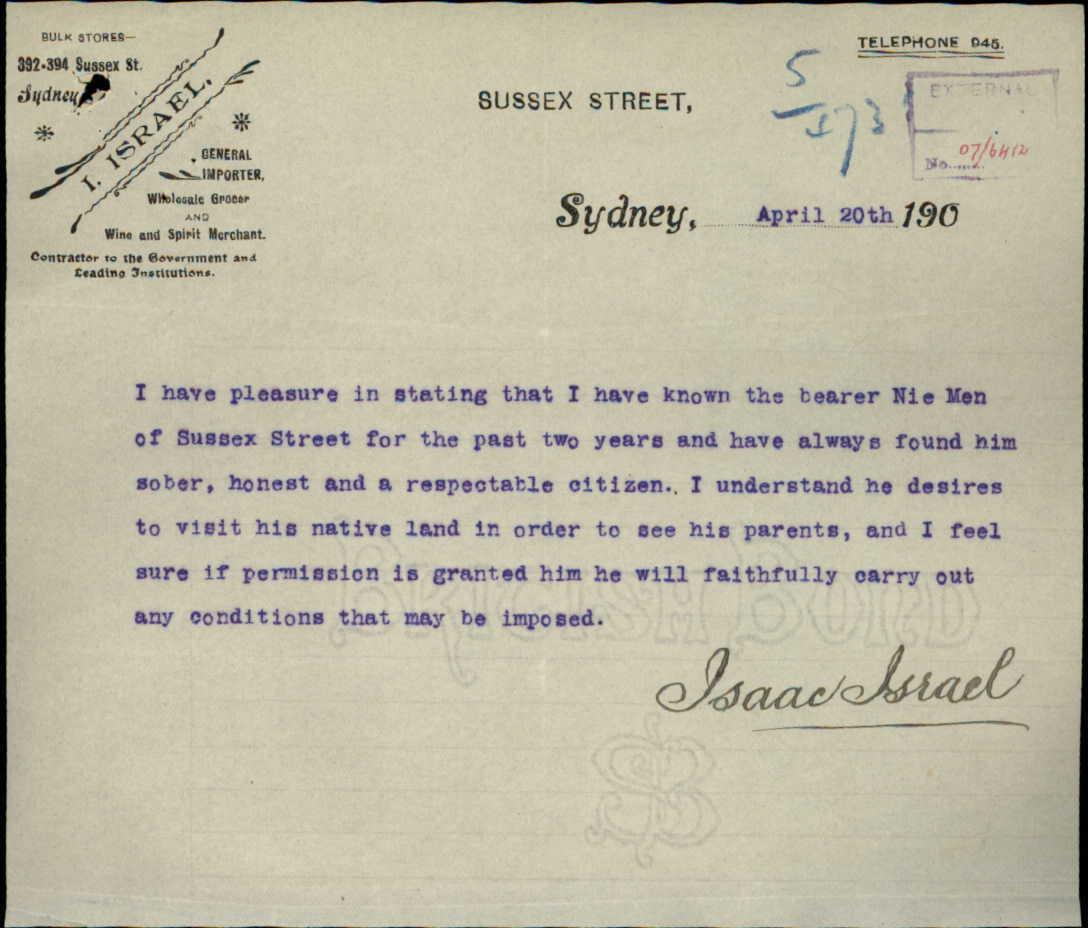 BULK STORES—
392-394 Sussex St.
Sydney
I. ISRAEL.
GENERAL
IMPORTER,
Wholesale Grocer
AND
Wine and Spirit Merchant.
Contractor to the Government and
Leading Institutions.
TELEPHONE 945.
SUSSEX STREET,
5
173
EXTERNAL
No...... 07/6412
Sydney, April 20th 190
I have pleasure in stating that I have known the bearer Nie Men
of Sussex Street for the past two years and have always found him
sober, honest and a respectable citizen. I understand he desires
to visit his native land in order to see his parents, and I feel
sure if permission is granted him he will faithfully carry out
any conditions that may be imposed.
BRITISH BOND
Isaac Israel